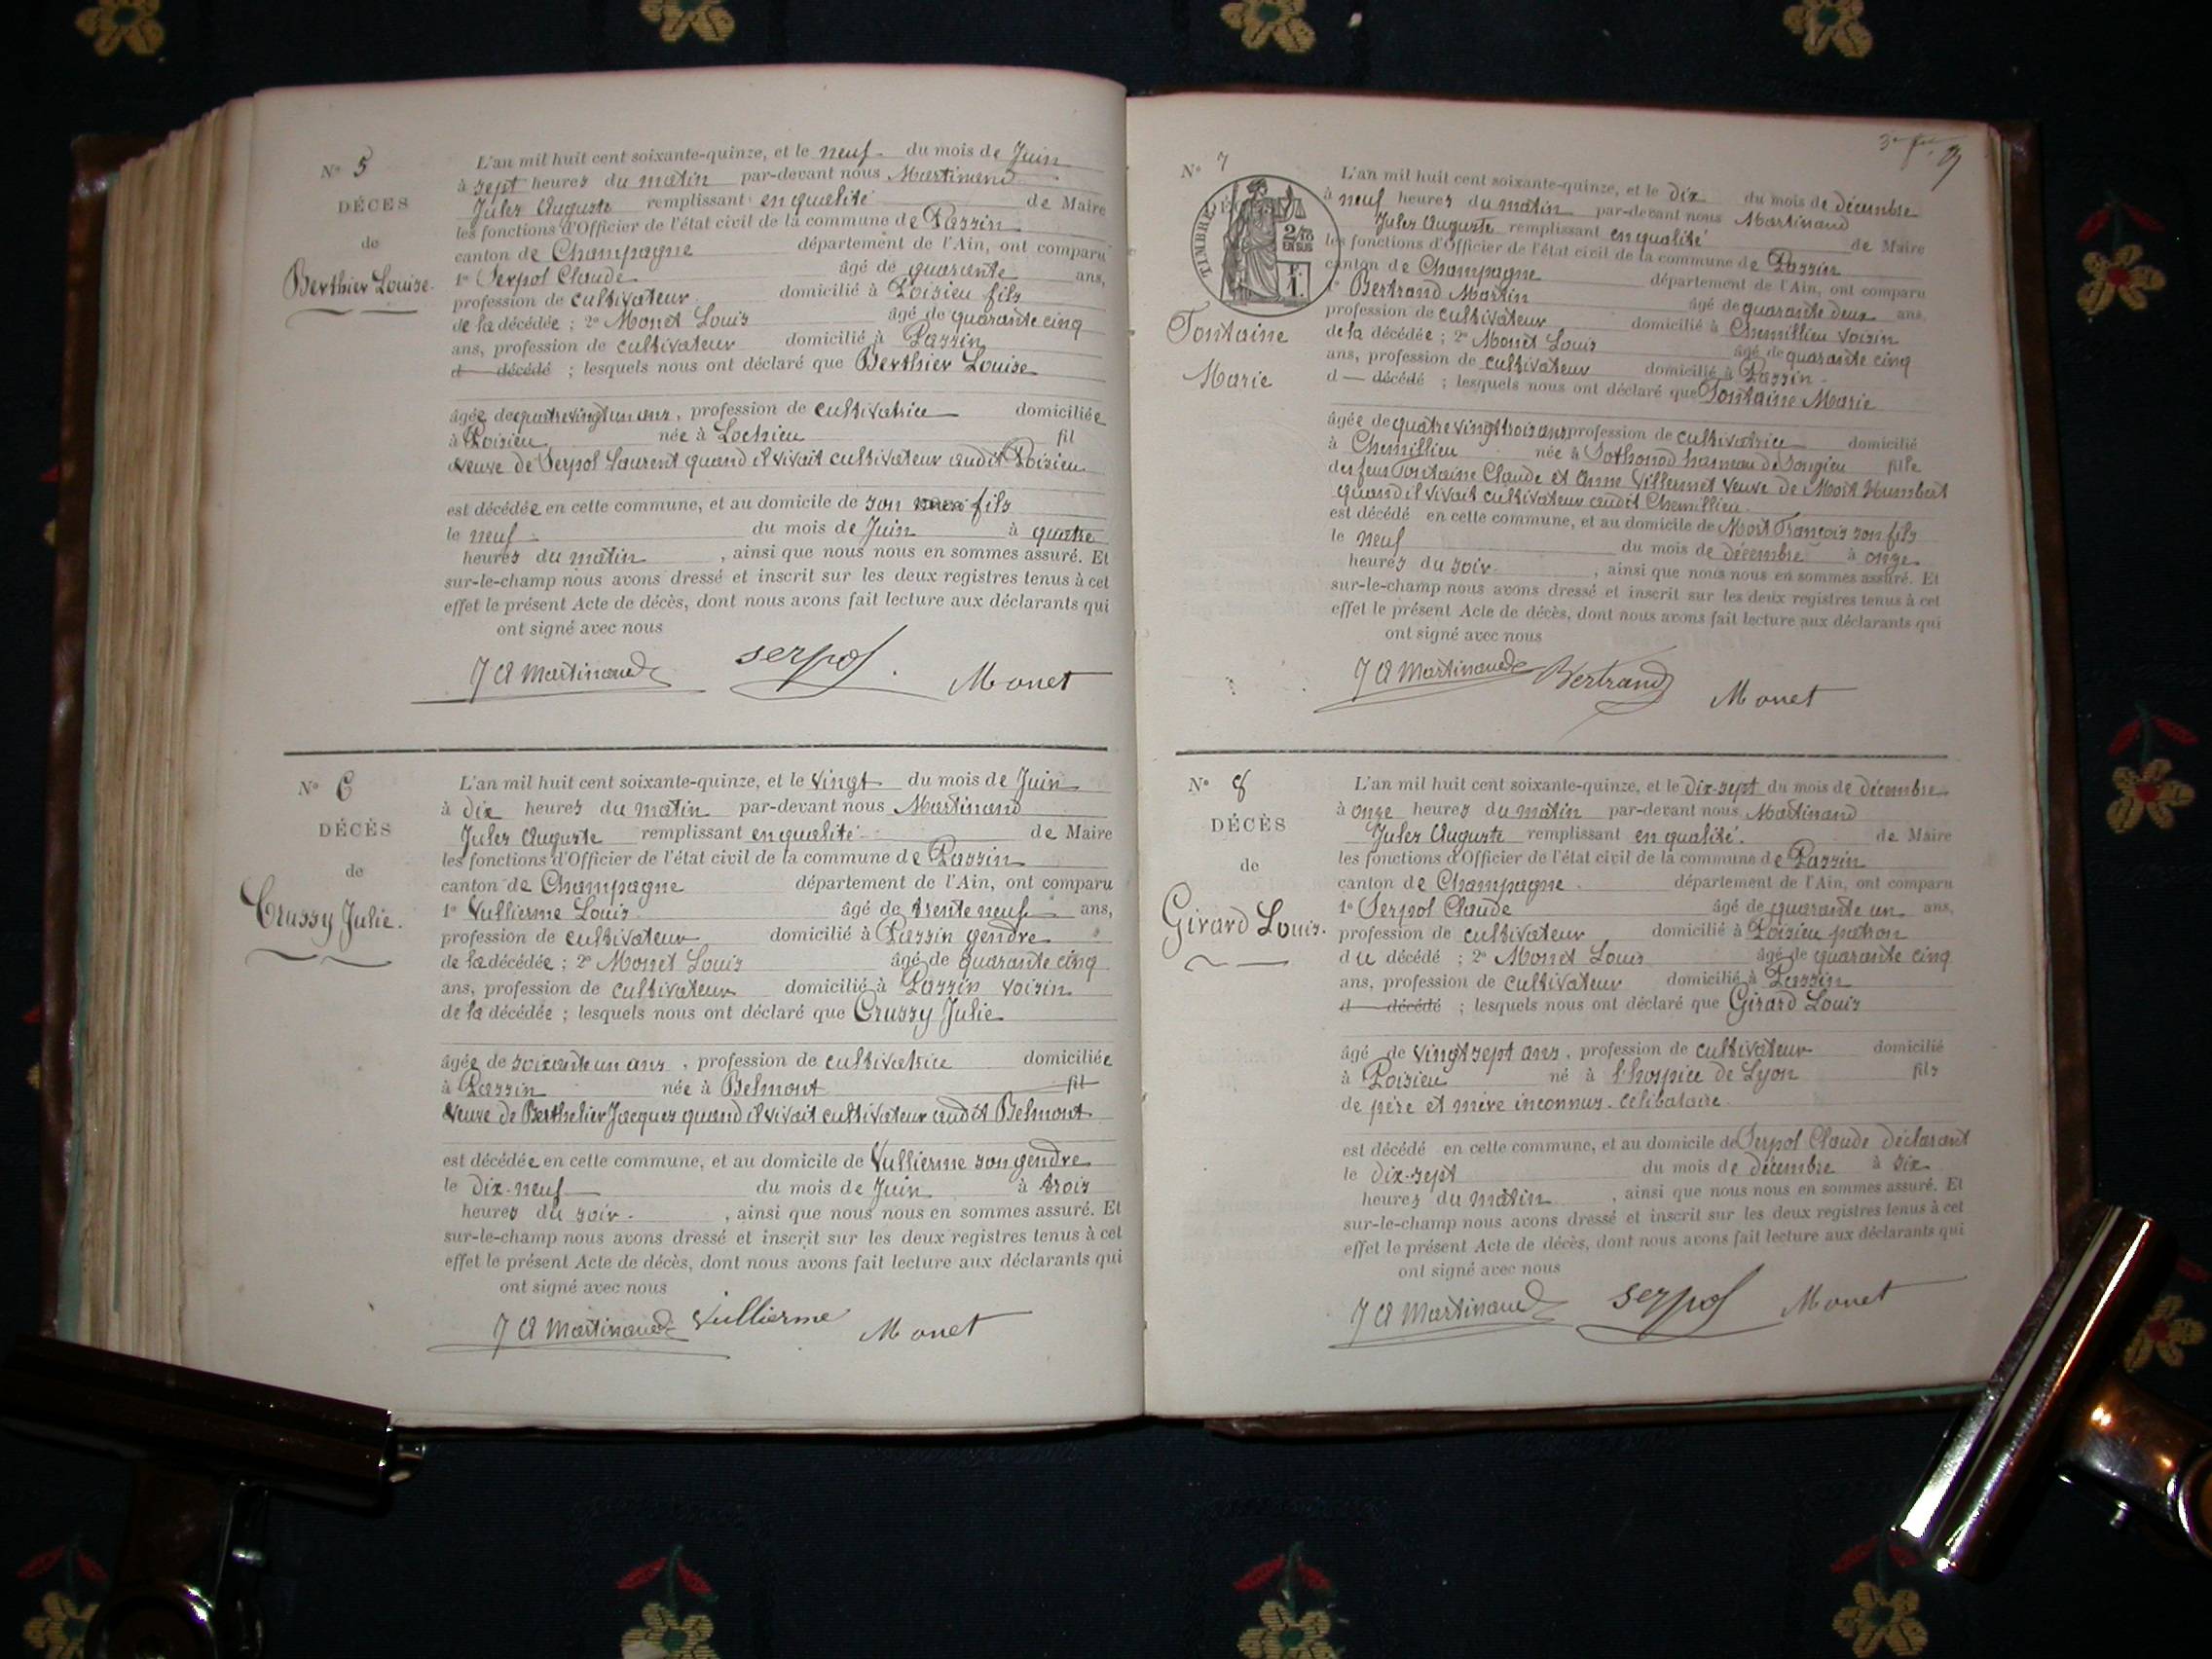 N° 5
DÉCES
de
Berthier Louise.
L'an mil huit cent soixante-quinze, et le neuf du mois de Juin
à sept heures du matin par-devant nous Martinand
Jules Auguste remplissant en qualité de Maire
les fonctions d'Officier de l'état civil de la commune de Passin
canton de Champagne département de l'Ain, ont comparu
1° Serpol Claude âgé de quarante ans,
profession de cultivateur domicilié à Poisieu fils
de la décédée ; 2° Monet Louis âgé de quarante cinq
ans, profession de cultivateur domicilié à Passin
d décédé ; lesquels nous ont déclaré que Berthier Louise
âgée de quatre vingt un ans, profession de cultivatrice domiciliée
à Poisieu née à Lochieu fil
veuve de Serpol Laurent quand il vivait cultivateur audit Poisieu
est décédée en cette commune, et au domicile de son fils
le neuf du mois de Juin à quatre
heures du matin, ainsi que nous nous en sommes assuré. Et
sur-le-champ nous avons dressé et inscrit sur les deux registres tenus à cet
effet le présent Acte de décès, dont nous avons fait lecture aux déclarants qui
ont signé avec nous
J A Martinand serpol Monet
N° 6
DÉCÈS
de
Crussy Julie.
L'an mil huit cent soixante-quinze, et le vingt du mois de Juin
à dix heures du matin par-devant nous Martinand
Jules Auguste remplissant en qualité de Maire
les fonctions d'Officier de l'état civil de la commune de Passin
canton de Champagne département de l'Ain, ont comparu
1° Vullierme Louis âgé de trente neuf ans,
profession de cultivateur domicilié à Passin gendre
de la décédée ; 2° Monet Louis âgé de quarante cinq
ans, profession de cultivateur domicilié à Passin voisin
de la décédée ; lesquels nous ont déclaré que Crussy Julie
âgée de soixante un ans, profession de cultivatrice domiciliée
à Passin née à Belmont fil
veuve de Berthelier Jacques quand il vivait cultivateur audit Belmont
est décédée en cette commune, et au domicile de Vullierme son gendre
le dix-neuf du mois de Juin à trois
heures du soir, ainsi que nous nous en sommes assuré. Et
sur-le-champ nous avons dressé et inscrit sur les deux registres tenus à cet
effet le présent Acte de décès, dont nous avons fait lecture aux déclarants qui
ont signé avec nous
J A Martinand Vullierme Monet
N° 7
TIMBRE
2/10
EN SUS
Fontaine
Marie
L'an mil huit cent soixante-quinze, et le dix du mois de décembre
à neuf heures du matin par-devant nous Martinand
Jules Auguste remplissant en qualité de Maire
les fonctions d'Officier de l'état civil de la commune de Passin
canton de Champagne département de l'Ain, ont comparu
1° Bertrand Martin âgé de quarante deux ans,
profession de cultivateur domicilié à Chemillieu voisin
de la décédée ; 2° Monet Louis âgé de quarante cinq
ans, profession de cultivateur domicilié à Passin
d décédé ; lesquels nous ont déclaré que Fontaine Marie
âgée de quatre vingt trois ans profession de cultivatrice domicilié
à Chemillieu née à Sothonod hameau de Songieu fille
des feus Fontaine Claude et Anne Villermet veuve de Moit Humbert
quand il vivait cultivateur audit Chemillieu
est décédé en cette commune, et au domicile de Moit François son fils
le neuf du mois de décembre à onze
heures du soir, ainsi que nous nous en sommes assuré. Et
sur-le-champ nous avons dressé et inscrit sur les deux registres tenus à cet
effet le présent Acte de décès, dont nous avons fait lecture aux déclarants qui
ont signé avec nous
J A Martinand Bertrand Monet
N° 8
DÉCÈS
de
Girard Louis.
L'an mil huit cent soixante-quinze, et le dix-sept du mois de décembre
à onze heures du matin par-devant nous Martinand
Jules Auguste remplissant en qualité de Maire
les fonctions d'Officier de l'état civil de la commune de Passin
canton de Champagne département de l'Ain, ont comparu
1° Serpol Claude âgé de quarante un ans,
profession de cultivateur domicilié à Poisieu patron
du décédé ; 2° Monet Louis âgé de quarante cinq
ans, profession de cultivateur domicilié à Passin
d décédé ; lesquels nous ont déclaré que Girard Louis
âgé de vingt sept ans, profession de cultivateur domicilié
à Poisieu né à l'hospice de Lyon fils
de père et mère inconnus. Célibataire
est décédé en cette commune, et au domicile de Serpol Claude déclarant
le dix-sept du mois de décembre à six
heures du matin, ainsi que nous nous en sommes assuré. Et
sur-le-champ nous avons dressé et inscrit sur les deux registres tenus à cet
effet le présent Acte de décès, dont nous avons fait lecture aux déclarants qui
ont signé avec nous
J A Martinand serpol Monet